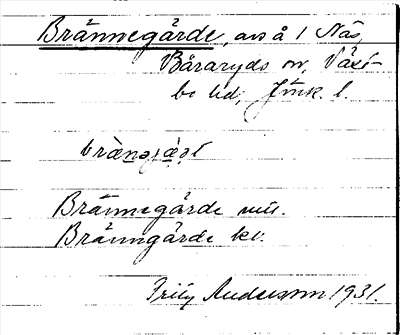 Brännegärde, avs å 1 Näs,
Båraryds sn, Väst-
bo hd, Jönk. l.
Brännegärde mtl.
Bränngärde kv.
Frity Anderson 1931.